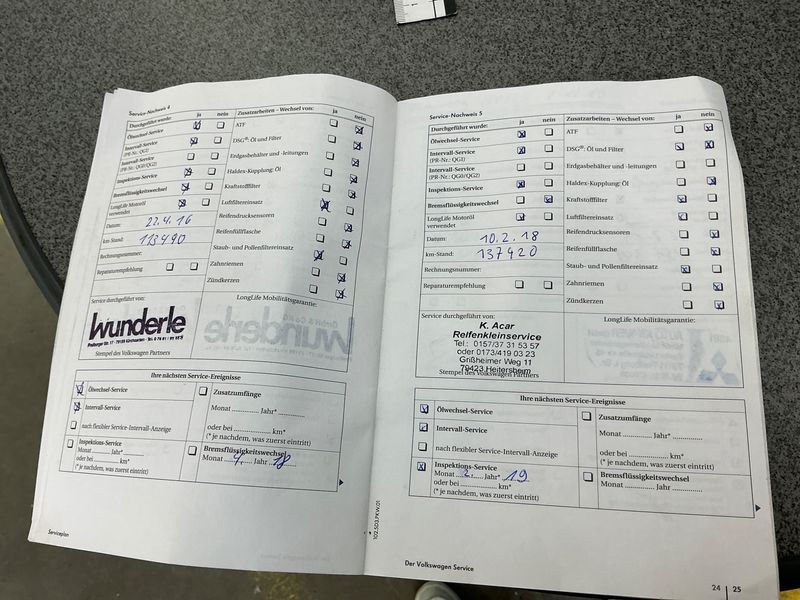 Service-Nachweis 4
Durchgeführt wurde: ja nein
Ölwechsel-Service
Intervall-Service
(PR-Nr.: QG1)
Intervall-Service
(PR-Nr.: QG0/QG2)
Inspektions-Service
Bremsflüssigkeitswechsel
LongLife Motoröl
verwendet
Datum: 22.4.16
km-Stand: 113490
Rechnungsnummer:
Reparaturempfehlung
Zusatzarbeiten – Wechsel von: ja nein
ATF
DSG®: Öl und Filter
Erdgasbehälter und -leitungen
Haldex-Kupplung: Öl
Kraftstofffilter
Luftfiltereinsatz
Reifendrucksensoren
Reifenfüllflasche
Staub- und Pollenfiltereinsatz
Zahnriemen
Zündkerzen
Service durchgeführt von:
Wunderle
Stempel des Volkswagen Partners
LongLife Mobilitätsgarantie:
Ihre nächsten Service-Ereignisse
Ölwechsel-Service
Intervall-Service
nach flexibler Service-Intervall-Anzeige
Inspektions-Service
Monat ........ Jahr* ........
oder bei ........ km*
(* je nachdem, was zuerst eintritt)
Zusatzumfänge
Monat ........ Jahr* ........
oder bei ........ km*
(* je nachdem, was zuerst eintritt)
Bremsflüssigkeitswechsel
Monat 4 Jahr 18
Serviceplan
102.5G3.PKW.01
Service-Nachweis 5
Durchgeführt wurde: ja nein
Ölwechsel-Service
Intervall-Service
(PR-Nr.: QG1)
Intervall-Service
(PR-Nr.: QG0/QG2)
Inspektions-Service
Bremsflüssigkeitswechsel
LongLife Motoröl
verwendet
Datum: 10.2.18
km-Stand: 137420
Rechnungsnummer:
Reparaturempfehlung
Zusatzarbeiten – Wechsel von: ja nein
ATF
DSG®: Öl und Filter
Erdgasbehälter und -leitungen
Haldex-Kupplung: Öl
Kraftstofffilter
Luftfiltereinsatz
Reifendrucksensoren
Reifenfüllflasche
Staub- und Pollenfiltereinsatz
Zahnriemen
Zündkerzen
Service durchgeführt von:
K. Acar
Reifenkleinservice
Tel.: 0157/37 31 53 57
oder 0173/419 03 23
Grißheimer Weg 11
79423 Heitersheim
Stempel des Volkswagen Partners
LongLife Mobilitätsgarantie:
Ihre nächsten Service-Ereignisse
Ölwechsel-Service
Intervall-Service
nach flexibler Service-Intervall-Anzeige
Inspektions-Service
Monat 2. Jahr* 19
oder bei ........ km*
(* je nachdem, was zuerst eintritt)
Zusatzumfänge
Monat ........ Jahr* ........
oder bei ........ km*
(* je nachdem, was zuerst eintritt)
Bremsflüssigkeitswechsel
Monat ........ Jahr ........
Der Volkswagen Service
24 | 25